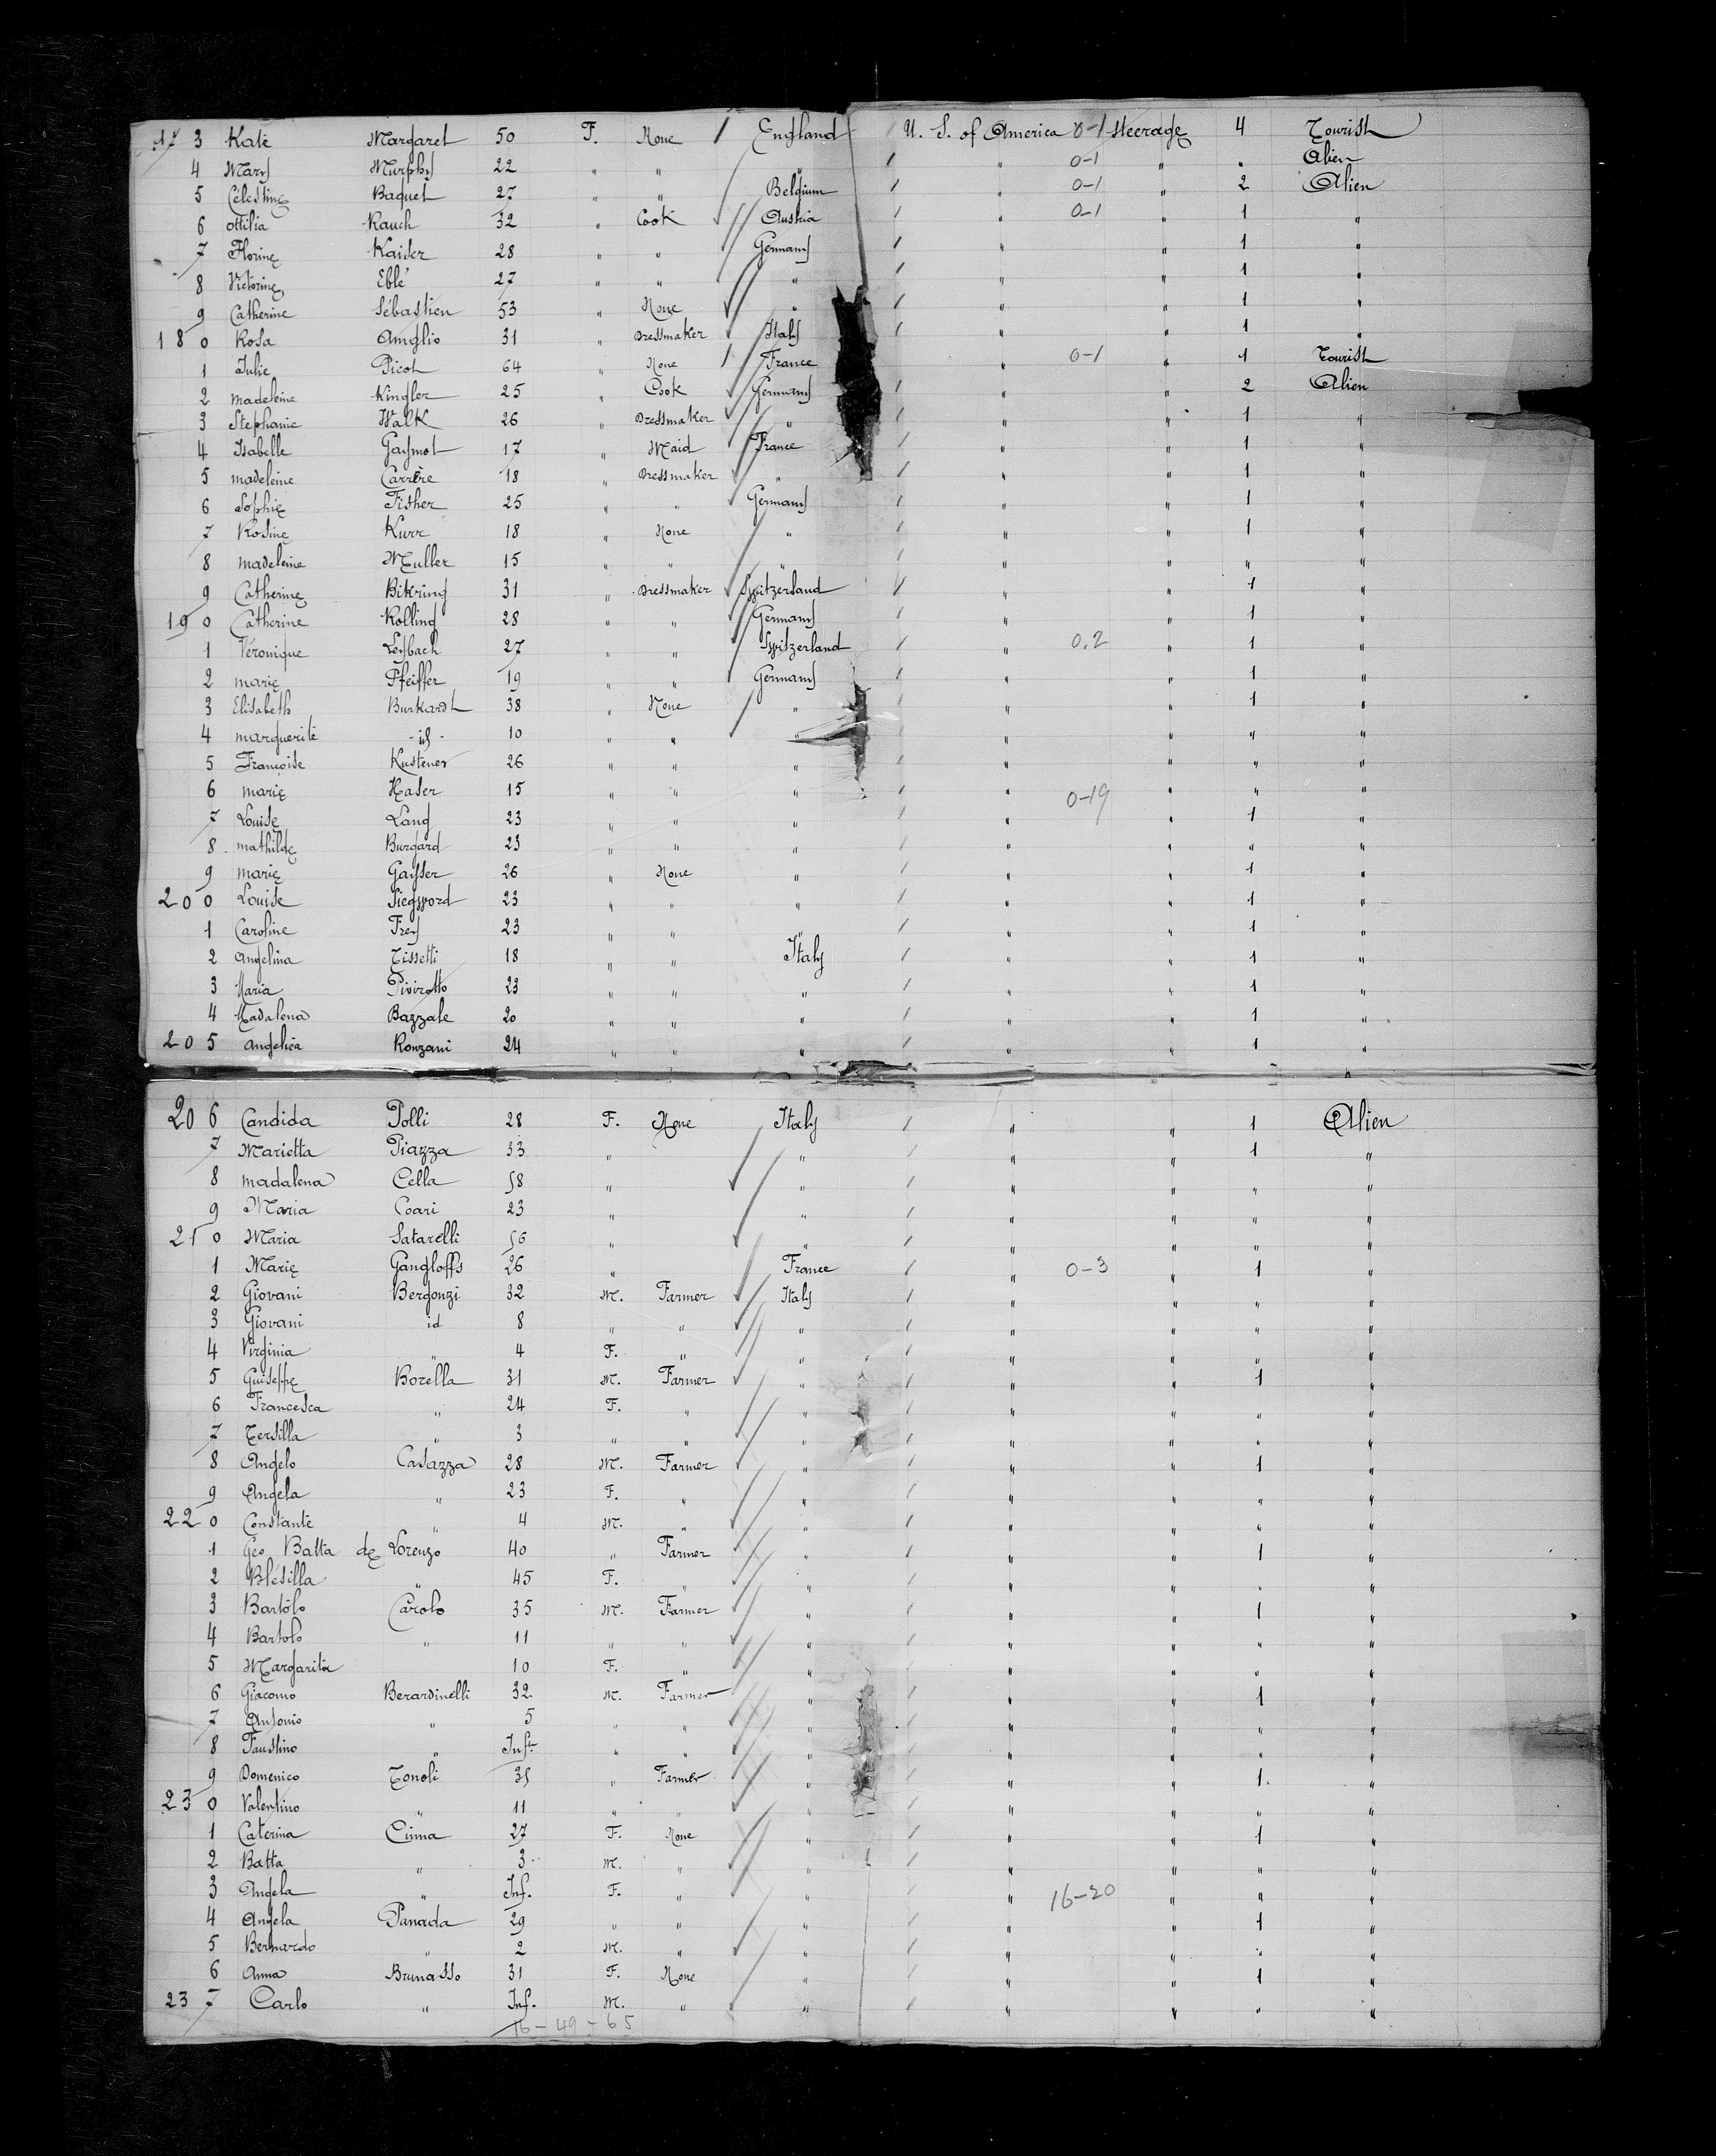 173 Kate Margaret 50 F. None England U. S. of America 0-1 Steerage 4 Tourist
4 Mary Murphy 22 " " " " 0-1 " " Alien
5 Célestine Baquet 27 " " Belgium " 0-1 " 2 Alien
6 Ottilia Rauch 32 " Cook Austria " 0-1 " 1 "
7 Florine Kaiser 28 " " Germany " " 1 "
8 Victorine Eblé 27 " " " " " 1 "
9 Catherine Sébastien 53 " None " " " 1 "
180 Rosa Anglio 31 " Dressmaker Italy " " 1 "
1 Julie Picot 64 " None France " 0-1 " 1 Tourist
2 Madeleine Kingler 25 " Cook Germany " " 2 Alien
3 Stephanie Walk 26 " Dressmaker " " " 1 "
4 Isabelle Gaymot 17 " Maid France " " 1 "
5 Madeleine Carrère 18 " Dressmaker " " " 1 "
6 Sophie Fisher 25 " " Germany " " 1 "
7 Rosine Kurr 18 " None " " " 1 "
8 Madeleine Muller 15 " " " " " " "
9 Catherine Bikring 31 " Dressmaker Switzerland " " 1 "
190 Catherine Kolling 28 " " Germany " " 1 "
1 Véronique Leybach 27 " " Switzerland " 0.2 " 1 "
2 Marie Pfeiffer 19 " " Germany " " 1 "
3 Elisabeth Burkardt 38 " None " " " 1 "
4 Marguerite - id - 10 " " " " " " "
5 Françoise Kustener 26 " " " " " " "
6 Marie Haser 15 " " " " 0-19 " " "
7 Louise Lang 23 " " " " " 1 "
8 Mathilde Burgard 23 " " " " " " "
9 Marie Gaysser 26 " None " " " 1 "
200 Louise 23 " " " " " 1 "
1 Caroline Frey 23 " " " " " 1 "
2 Angelina Tissetti 18 " " Italy " " 1 "
3 Maria Pivirotto 23 " " " " " 1 "
4 Madalena Bazzale 20 " " " " " 1 "
205 Angelica Ronzani 24 " " " " " 1 "
206 Candida Polli 28 F. None Italy " " 1 Alien
7 Marietta Piazza 33 " " " " 1 "
8 Madalena Cella 58 " " " " " "
9 Maria Coari 23 " " " " " "
210 Maria Satarelli 56 " " " " " "
1 Marie Gangloffs 26 " France " 0-3 " 1 "
2 Giovani Bergonzi 32 M. Farmer Italy " " " "
3 Giovani id 8 " " " " " " "
4 Virginia " 4 F. " " " " " "
5 Guiseppe Borella 31 M. Farmer " " " 1 "
6 Francesca " 24 F. " " " " " "
7 Tersilla " 3 " " " " " " "
8 Angelo Casazza 28 M. Farmer " " " 1 "
9 Angela " 23 F. " " " " " "
220 Constante " 4 M. " " " " " "
1 Geo Batta de Lorenzo 40 " Farmer " " " 1 "
2 Blésilla " 45 F. " " " " " "
3 Bartolo Carolo 35 M. Farmer " " " 1 "
4 Bartolo " 11 " " " " " " "
5 Margarita 10 F. " " " " " "
6 Giacomo Berardinelli 32 M. Farmer " " " 1 "
7 Antonio " 5 " " " " " " "
8 Faustino " Inft " " " " " " "
9 Domenico Tonoli 35 " Farmer " " " 1 "
230 Valentino " 11 " " " " " " "
1 Caterina Cima 27 F. None " " " 1 "
2 Batta " 3 M. " " " " " "
3 Angela " Inf. F. " " " 16-20 " " "
4 Angela Panada 29 " " " " " 1 "
5 Bernardo " 2 M. " " " " " "
6 Anna Brunasso 31 F. None " " " 1 "
237 Carlo " Inf. M. " " " " " "
16-49-65